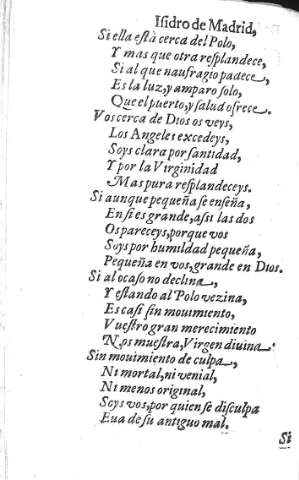 Isidro de Madrid,
Si ella eſtà cerca del Polo,
Y mas que otra reſplandece,
Si al que naufragio padece,
Es la luz, y amparo ſolo,
Que el puerto, y ſalud ofrece.
Vos cerca de Dios os veys,
Los Angeles excedeys,
Soys clara por ſantidad,
Y por la Virginidad
Mas pura reſplandeceys.
Si aunque pequeña ſe enſeña,
En ſi es grande, aſsi las dos
Os pareceys, porque vos
Soys por humildad pequeña,
Pequeña en vos, grande en Dios.
Si al ocaſo no declina,
Y eſtando al Polo vezina,
Es caſi ſin mouimiento,
Vueſtro gran merecimiento
Nos mueſtra, Virgen diuina.
Sin mouimiento de culpa,
Ni mortal, ni venial,
Ni menos original,
Soys vos, por quien ſe diſculpa
Eua de ſu antiguo mal.
Si